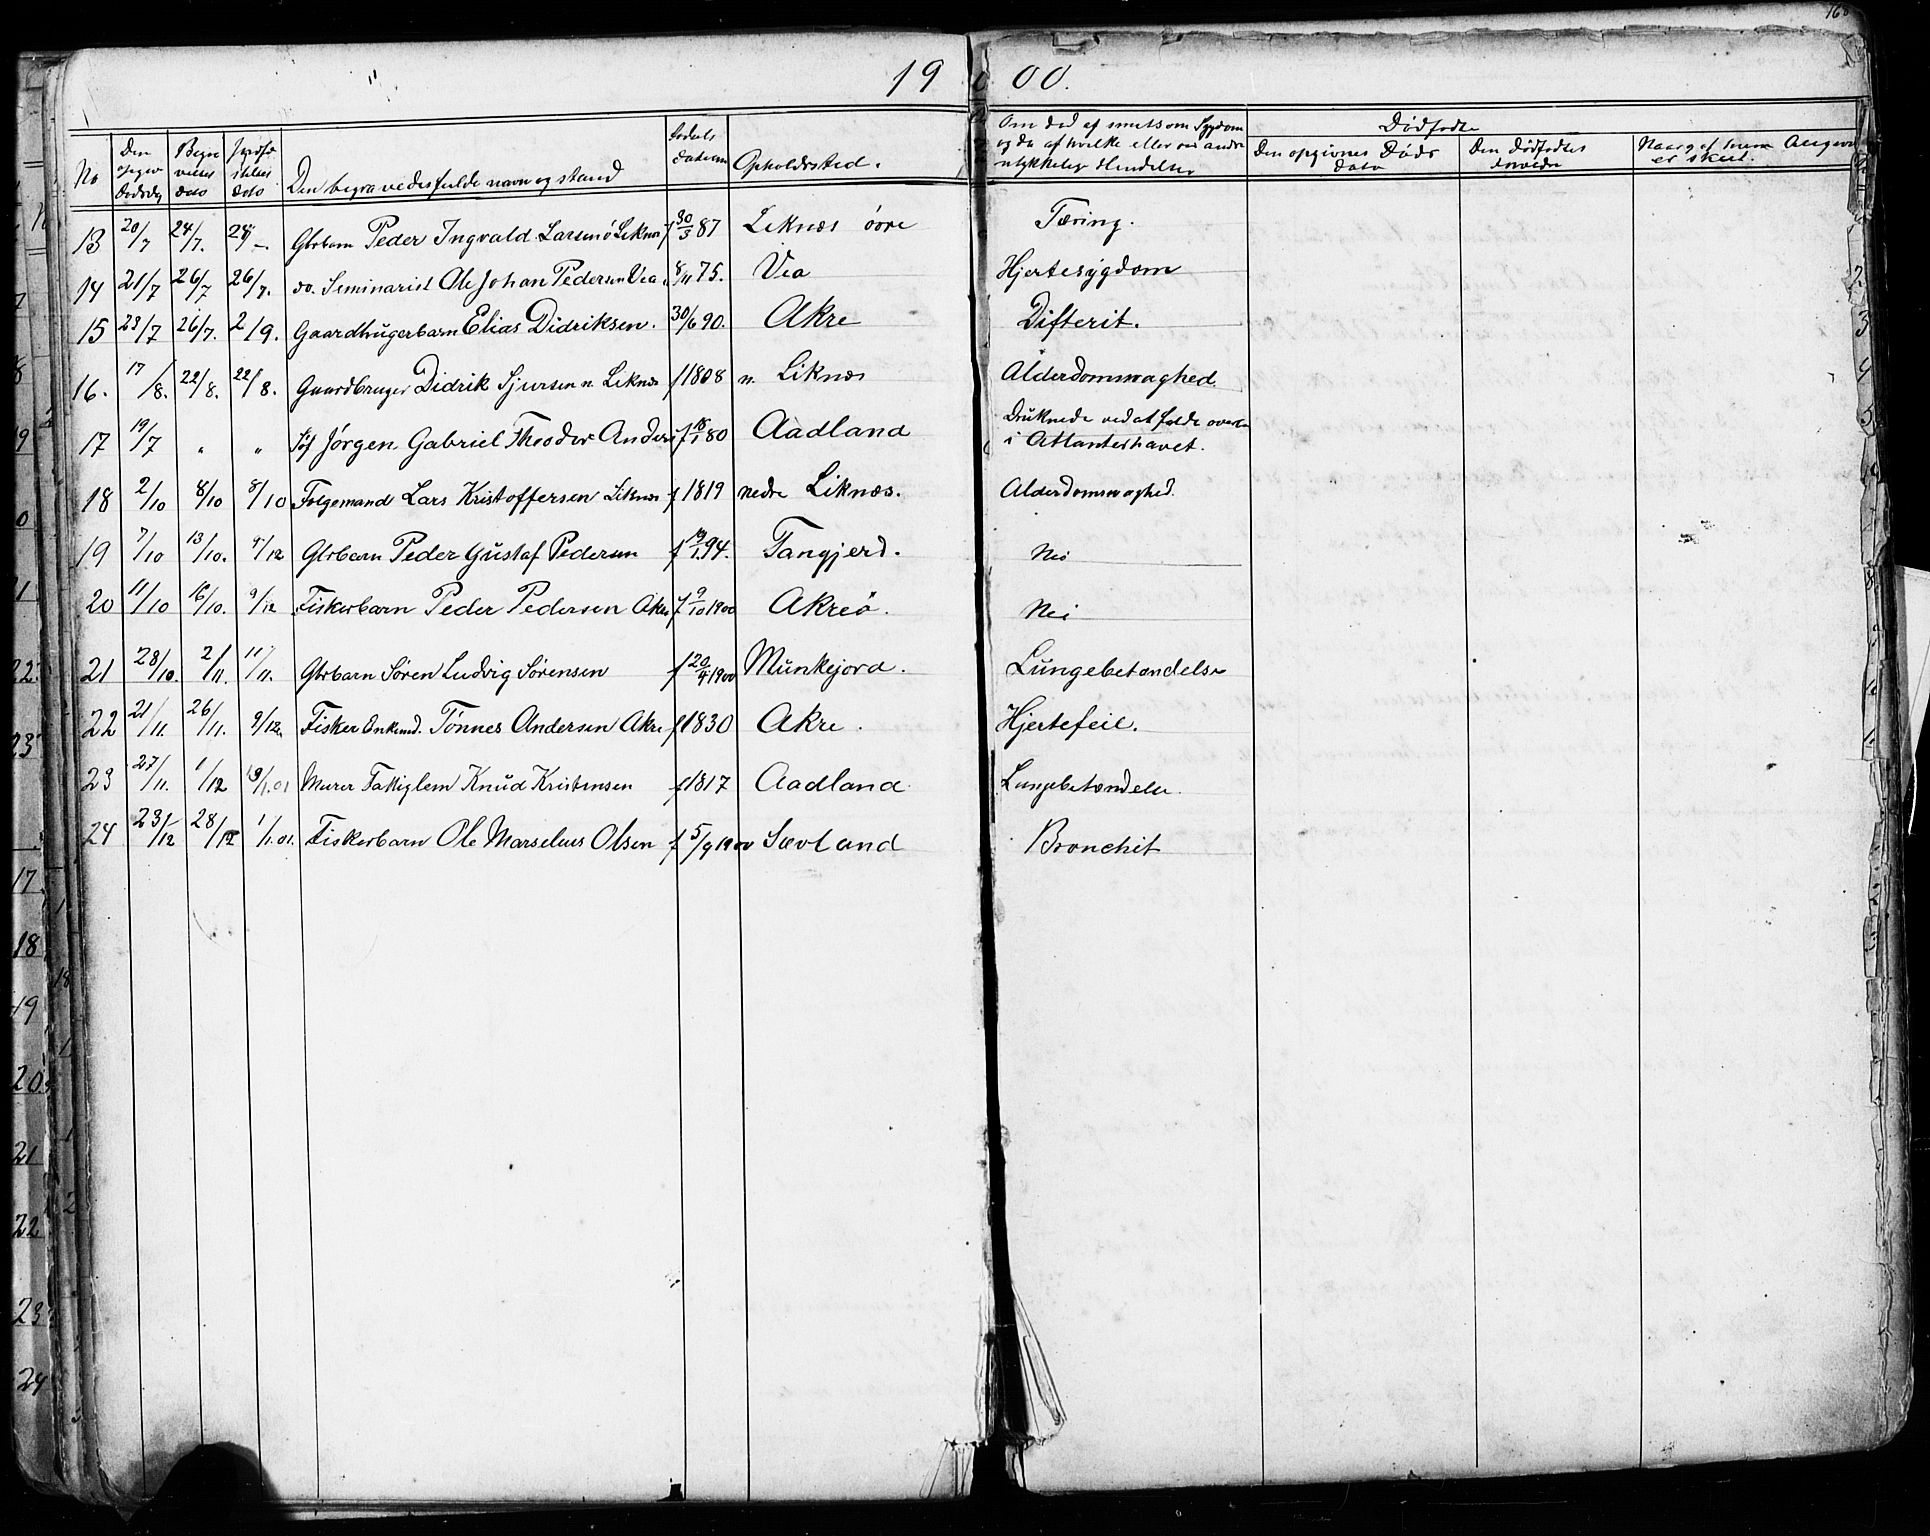 19 00.
No
Den opgivne Dødsdag
Begravelses Dato
Jordfæstelses Dato
Den begravedes fulde navn og stand
Fødsels Datum
Opholdssted.
Om død af smitsom Sygdom
og da af hvilke eller ved andre
ulykkelige Hendelser
Dødfødte
Den opgivnes Døds Dato
Den Dødfødtes
Naar
er skeet.
13 20/7 24/7. 24/ — Gbrbarn Peder Ingvald Larsen ö Liknes f 30/5 87 Liknes övre Tæring.
14 21/7 26/7 26/7. do. Seminarist Ole Johan Pedersen Vea 8/11 75. Vea Hjertesygdom
15 23/7 26/7. 2/9. Gaardbrugerbarn Elias Didriksen. 30/6 90. Akre Difterit.
16. 17/8. 22/8. 22/8. Gaardbruger Didrik Sjursen n. Liknes f 1808 n. Liknes Alderdomsvaghed.
17 19/7 " " Jørgen Gabriel Theodor Anders f 18/1 80 Aadland Druknede ved at falde overbo
i Atlanterhavet.
18 2/10 8/10 8/10 Folgemand Lars Kristoffersen Liknes f 1819 nedre Liknes. Alderdomsvaghed.
19 7/10 13/10. 9/12 Gbrbarn Peder Gustaf Pedersen f 19/1 94. Tangjerd. Nei
20 11/10 16/10. 9/12 Fiskerbarn Peder Pedersen Akre f 9/10 1900 Akreö. Nei
21 28/10. 2/11. 11/11. Gbrbarn Søren Ludvig Sørensen f 20/4 1900 Munkejord. Lungebetændelse
22 21/11. 26/11. 9/12. Fisker Enkemd. Tønnes Andersen Akre f 1830 Akre. Hjertefeil.
23 27/11. 1/12 13/1.01 Murer Fattiglem Knud Kristensen f 1817 Aadland Lungebetændelse.
24 23/12 28/12 1/1.01. Fiskerbarn Ole Marselius Olsen f 5/9 1900 Sævland Bronchit